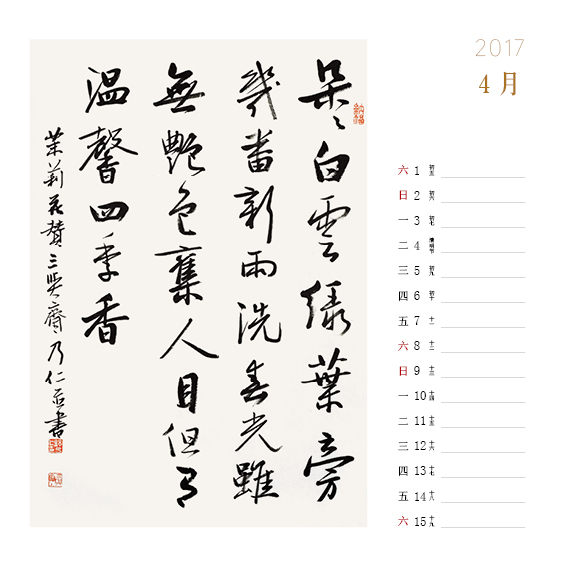 2017
4月
朵〻白雲緑葉旁
幾番新雨洗春光雖
無艷色奪人目但有
温馨四季香
茉莉花贊三吴齋乃仁并書
六 1 初五
日 2 初六
一 3 初七
二 4 清明节
三 5 初九
四 6 初十
五 7 十一
六 8 十二
日 9 十三
一 10 十四
二 11 十五
三 12 十六
四 13 十七
五 14 十八
六 15 十九